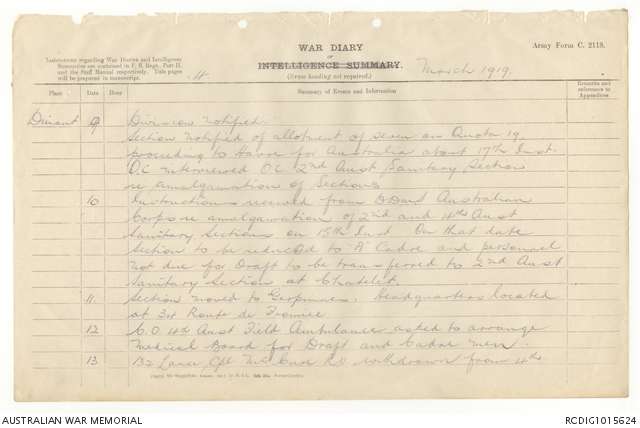 WAR DIARY
or
INTELLIGENCE SUMMARY.
(Erase heading not required.)
Army Form C. 2118.
Instructions regarding War Diaries and Intelligence
Summaries are contained in F. S. Regs., Part II.
and the Staff Manual respectively. Title pages
will be prepared in manuscript.
March 1919.
Place Date Hour Summary of Events and Information Remarks and references to Appendices
Dinant 9 Division notified.
Section notified of allotment of seven on Quota 19
proceeding to Havre for Australia about 17th Inst.
O.C. interviewed O.C. 2nd Aust Sanitary Section
re amalgamation of Sections
10 Instructions received from DDMS Australian
Corps re amalgamation of 2nd and 4th Aust
Sanitary Sections on 15th Inst On that date
Section to be reduced to "A" Cadre and personnel
not due for Draft to be transferred to 2nd Aust
Sanitary Section at Chatelet.
11 Section moved to Gerpinnes. Headquarters located
at 34 Route de
12 C.O. 4th Aust Field Ambulance asked to arrange
Medical Board for Draft and Cadre men.
13 Lance Cpl withdrawn from 4th
AUSTRALIAN WAR MEMORIAL
RCDIG1015624